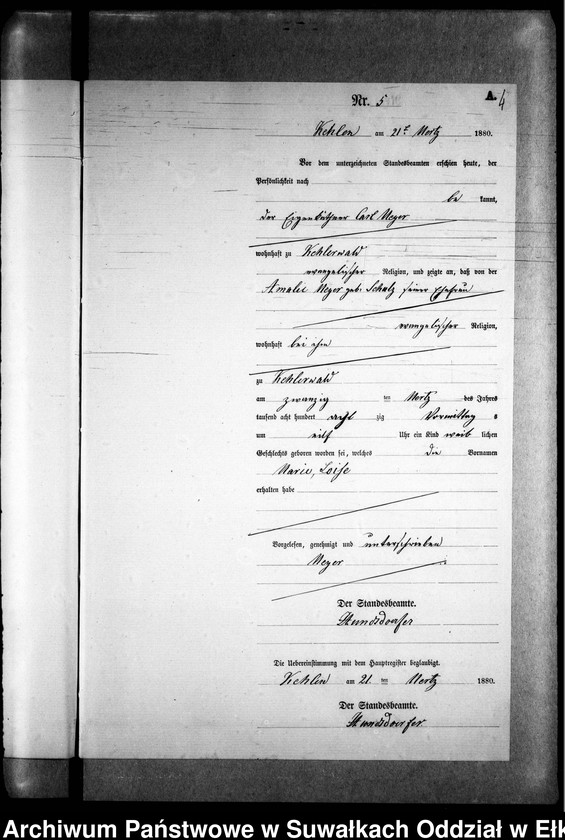 A. 4
Nr. 5
Kehlen am 21t Mertz 1880.
Vor dem unterzeichneten Standesbeamten erschien heute, der
Persönlichkeit nach
be kannt,
der Eigenkäthner Carl Meyer
wohnhaft zu Kehlerwald
evangelischer Religion, und zeigte an, daß von der
Amalie Meyer geb. Schulz seiner Ehefrau
evangelischer Religion,
wohnhaft bei ihm
zu Kehlerwald
am zwanzig ten Mertz des Jahres
tausend acht hundert acht zig Vormittag s
um eilf Uhr ein Kind weib lichen
Geschlechts geboren worden sei, welches die Vornamen
Marie, Loise
erhalten habe
Vorgelesen, genehmigt und unterschrieben
Meyer
Der Standesbeamte.
Die Uebereinstimmung mit dem Hauptregister beglaubigt.
Kehlen am 21. ten Mertz 1880.
Der Standesbeamte.
Archiwum Państwowe w Suwałkach Oddział w Ełk